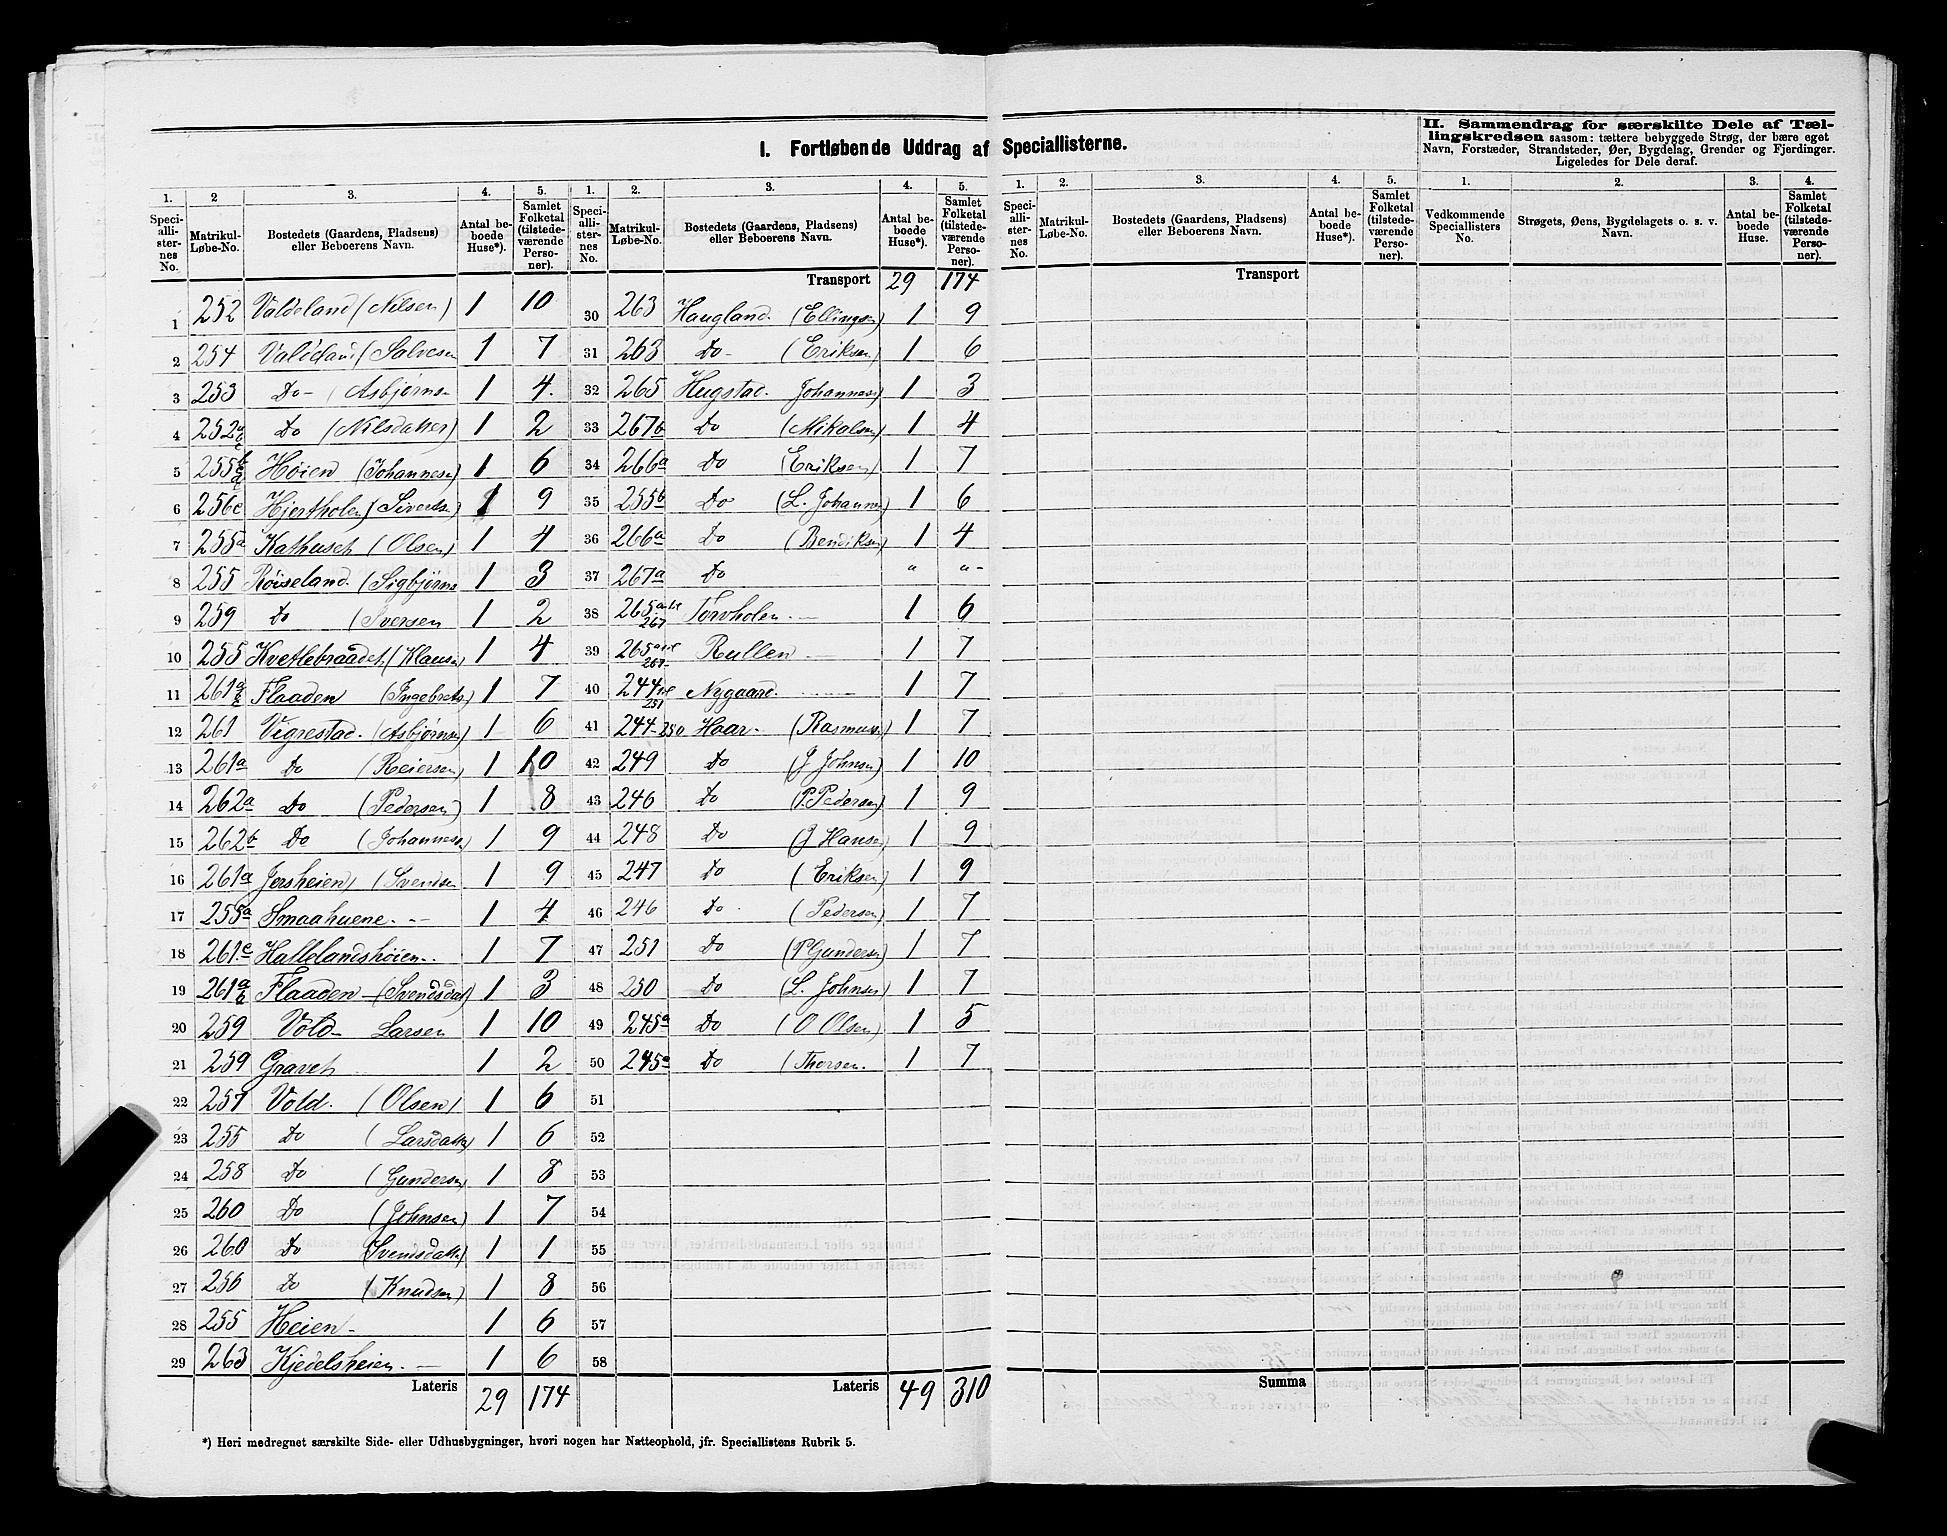 I. Fortløbende Uddrag af Speciallisterne.
II. Sammendrag for særskilte Dele af Tæl-
lingskredsen saasom: tættere bebyggede Strøg, der bære eget
Navn, Forstæder, Strandsteder, Øer, Bygdelag, Grender og Fjerdinger.
Ligeledes for Dele deraf.
1. 2 3. 4. 5. 1. 2. 3. 4. 5. 1. 2. 3. 4. 5. 1. 2. 3. 4.
Speciallisternes No. Matrikul-Løbe-No. Bostedets (Gaardens, Pladsens) eller Beboerens Navn. Antal beboede Huse*). Samlet Folketal (tilstedeværende Personer).
Speciallisternes No. Matrikul-Løbe-No. Bostedets (Gaardens, Pladsens) eller Beboerens Navn. Antal beboede Huse*). Samlet Folketal (tilstedeværende Personer).
Speciallisternes No. Matrikul-Løbe-No. Bostedets (Gaardens, Pladsens) eller Beboerens Navn. Antal beboede Huse*). Samlet Folketal (tilstedeværende Personer).
Vedkommende Speciallisters No. Strøgets, Øens, Bygdelagets o. s. v. Navn. Antal beboede Huse. Samlet Folketal (tilstedeværende Personer).
1 252 Valdeland (Nilsen) 1 10
2 254 (Salvesen 1 7
3 253 Do - (Asbjørns- 1 4.
4 252 Do (Nilsdatter) 1 2
5 255 Høien (Johannesen) 1 6
6 256c Hjortholen (Siverts.) 1 9
7 255a (Olsen) 1 4
8 255 Røiseland. (Sigbjørns 1 3
9 259 Do (Iversen 1 2
10 255 Kvetlebraadet (Klausn) 1 4
11 261a Flaaden (Ingebrets.) 1 7
12 261 Vigrestad. (Asbjørnsn) 1 6
13 261a Do (Reiersen) 1 10
14 262a Do (Pedersen) 1 8
15 262b Do (Johannesn) 1 9
16 261a Jersheien (Svendsen 1 9
17 255a Smaahuene. - 1 4
18 261c Hallelandshøien.. 1 7
19 261a Flaaden - (Svendsdat) 1 3
20 259 Vold - Larsen 1 10
21 259 Gravet 1 2
22 257 Vold. (Olsen) 1 6
23 255 Do (Larsdatter) 1 6
24 258 Do (Gundersen) 1 8
25 260 Do (Johnsen) 1 7
26 260 Do (Svendsdatter) 1 1
27 256 Do (Knudsen) 1 8
28 255 Heien - 1 6
29 263 Kjedelsheien. - 1 6
Lateris 29 174
Transport 29 174
30 263 Haugland. (Ellingsen) 1 9
31 263 Do - (Eriksen) 1 6
32 265 Hugstad. Johannesn) 1 3
33 267b Do (Mikalsen) 1 4
34 266a Do (Eriksen) 1 7
35 255b Do (L. Johannesn) 1 6
36 266a Do (Bendiksen) 1 4
37 267a Do " "-
38 265a 267 Torvholen. - 1 6
39 265a 267 Rullen - 1 7
40 244 251 Nygaard. 1 7
41 244-250 Haar. (Rasmusn.) 1 7
42 249 Do (J Johnsen) 1 10
43 246 Do (P. Pedersen) 1 9
44 248 Do (J Hansen) 1 9
45 247 Do (Eriksen) 1 9
46 246 Do. (Pedersen) 1 7
47 251 Do (P Gundersen) 1 7
48 250 Do (L. Johnsen) 1 7
49 245a Do (O Olsen) 1 5
50 245a Do (Thorsen. 1 7
51
52
53
54
55
56
57
58
Lateris 49 310
Transport
Summa
*) Heri medregnet særskilte Side- eller Udhusbygninger, hvori nogen har Natteophold, jfr. Speciallistens Rubrik 5.